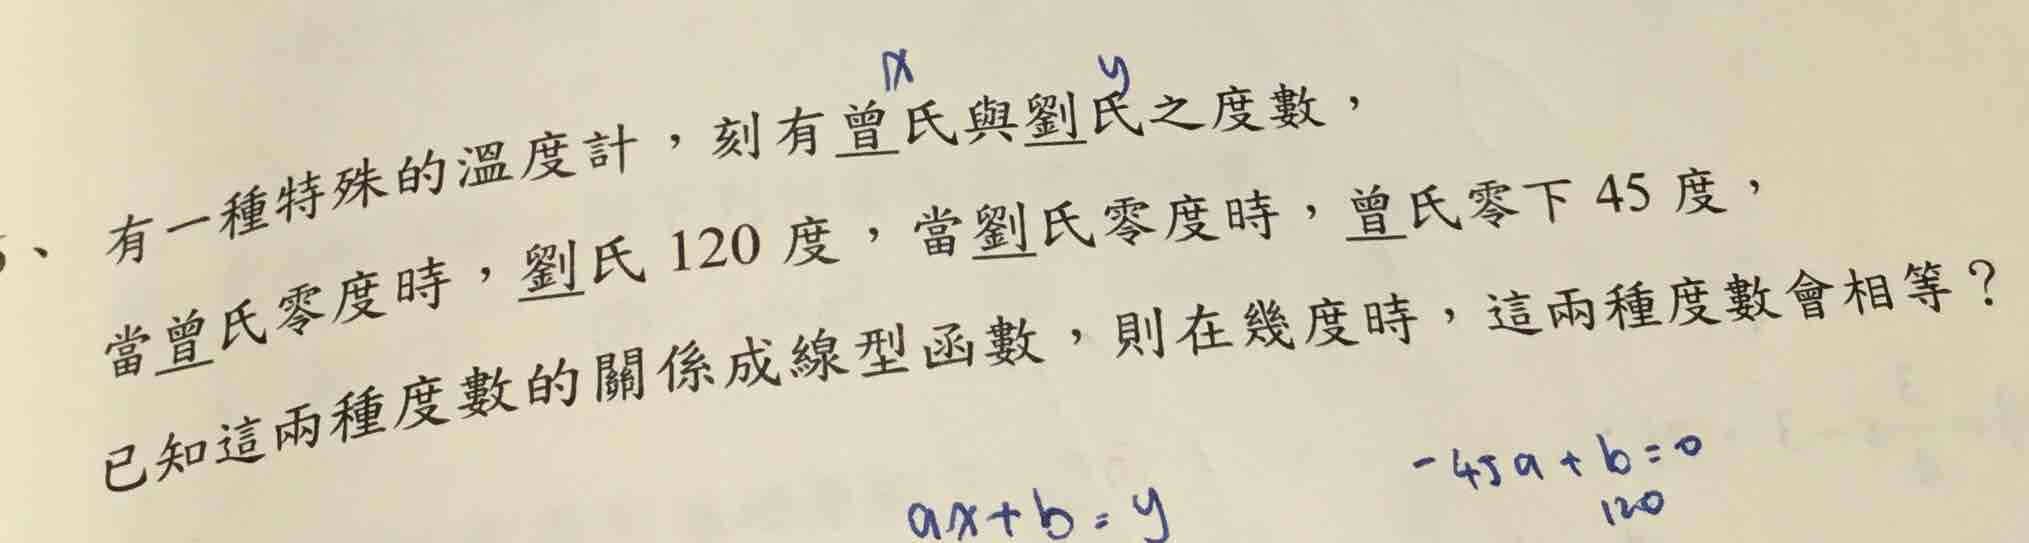 x y
、有一種特殊的溫度計，刻有曾氏與劉氏之度數，
當曾氏零度時，劉氏 120 度，當劉氏零度時，曾氏零下 45 度，
已知這兩種度數的關係成線型函數，則在幾度時，這兩種度數會相等？
-45a + b = 0
120
ax + b = y